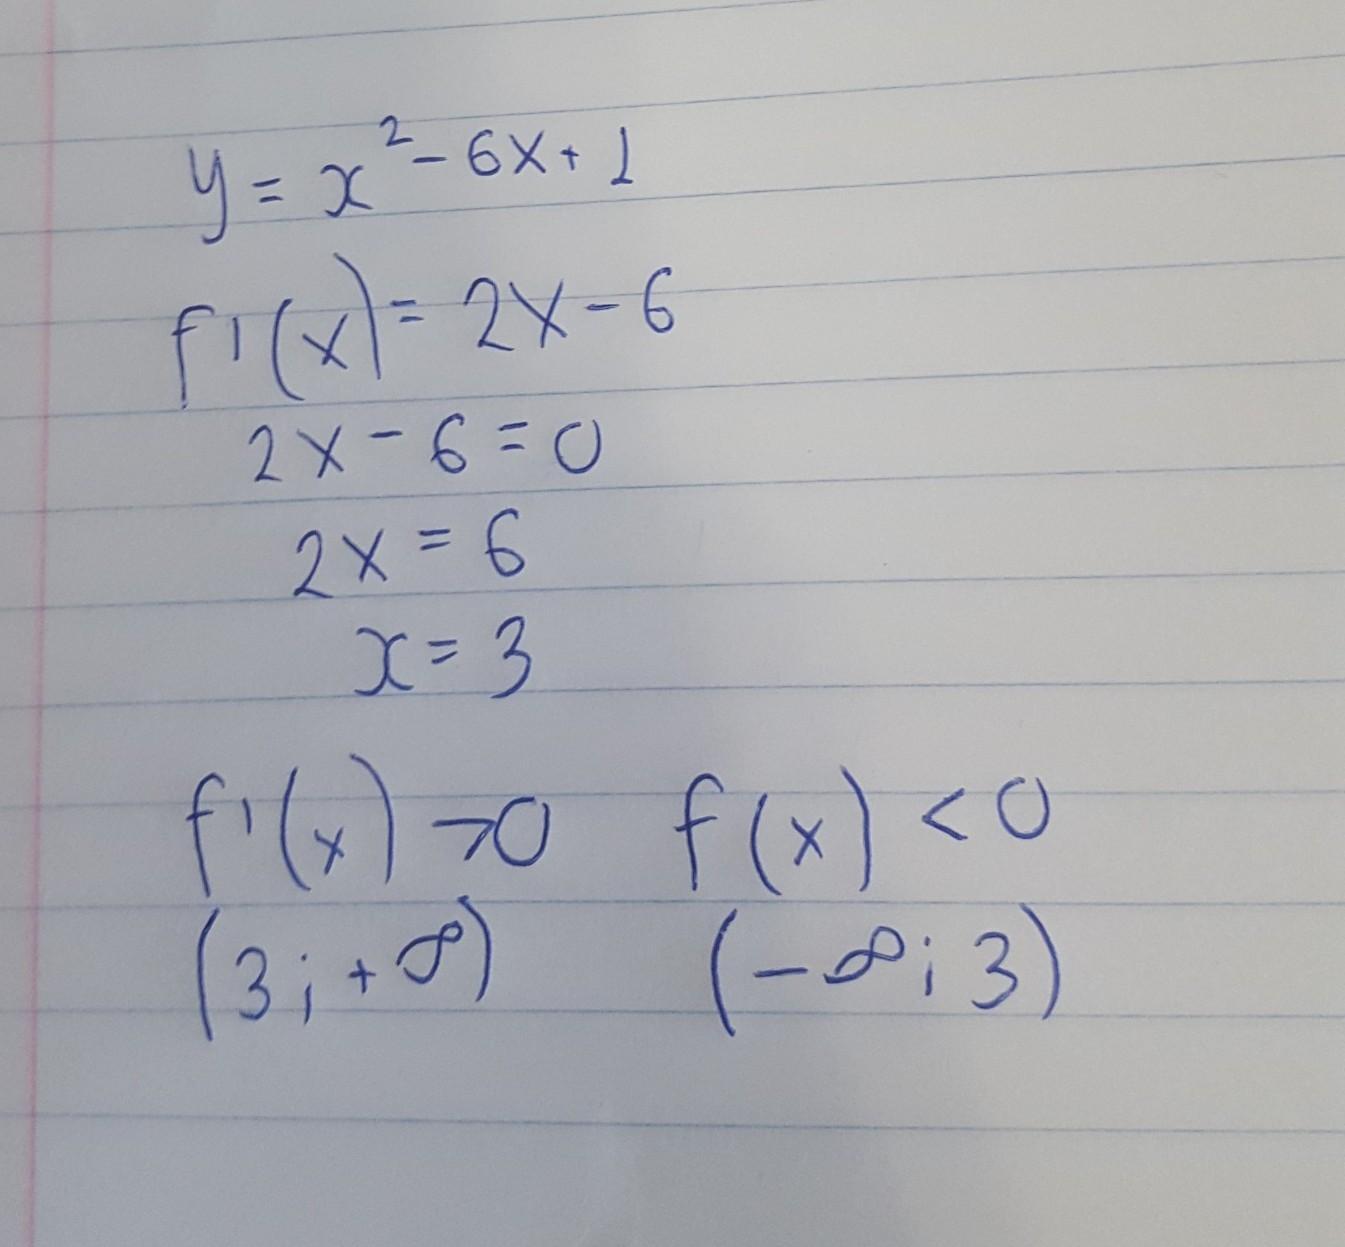 y = x² - 6x + 1
f'(x) = 2x - 6
2x - 6 = 0
2x = 6
x = 3
f'(x) > 0 f(x) < 0
(3; +∞) (-∞; 3)